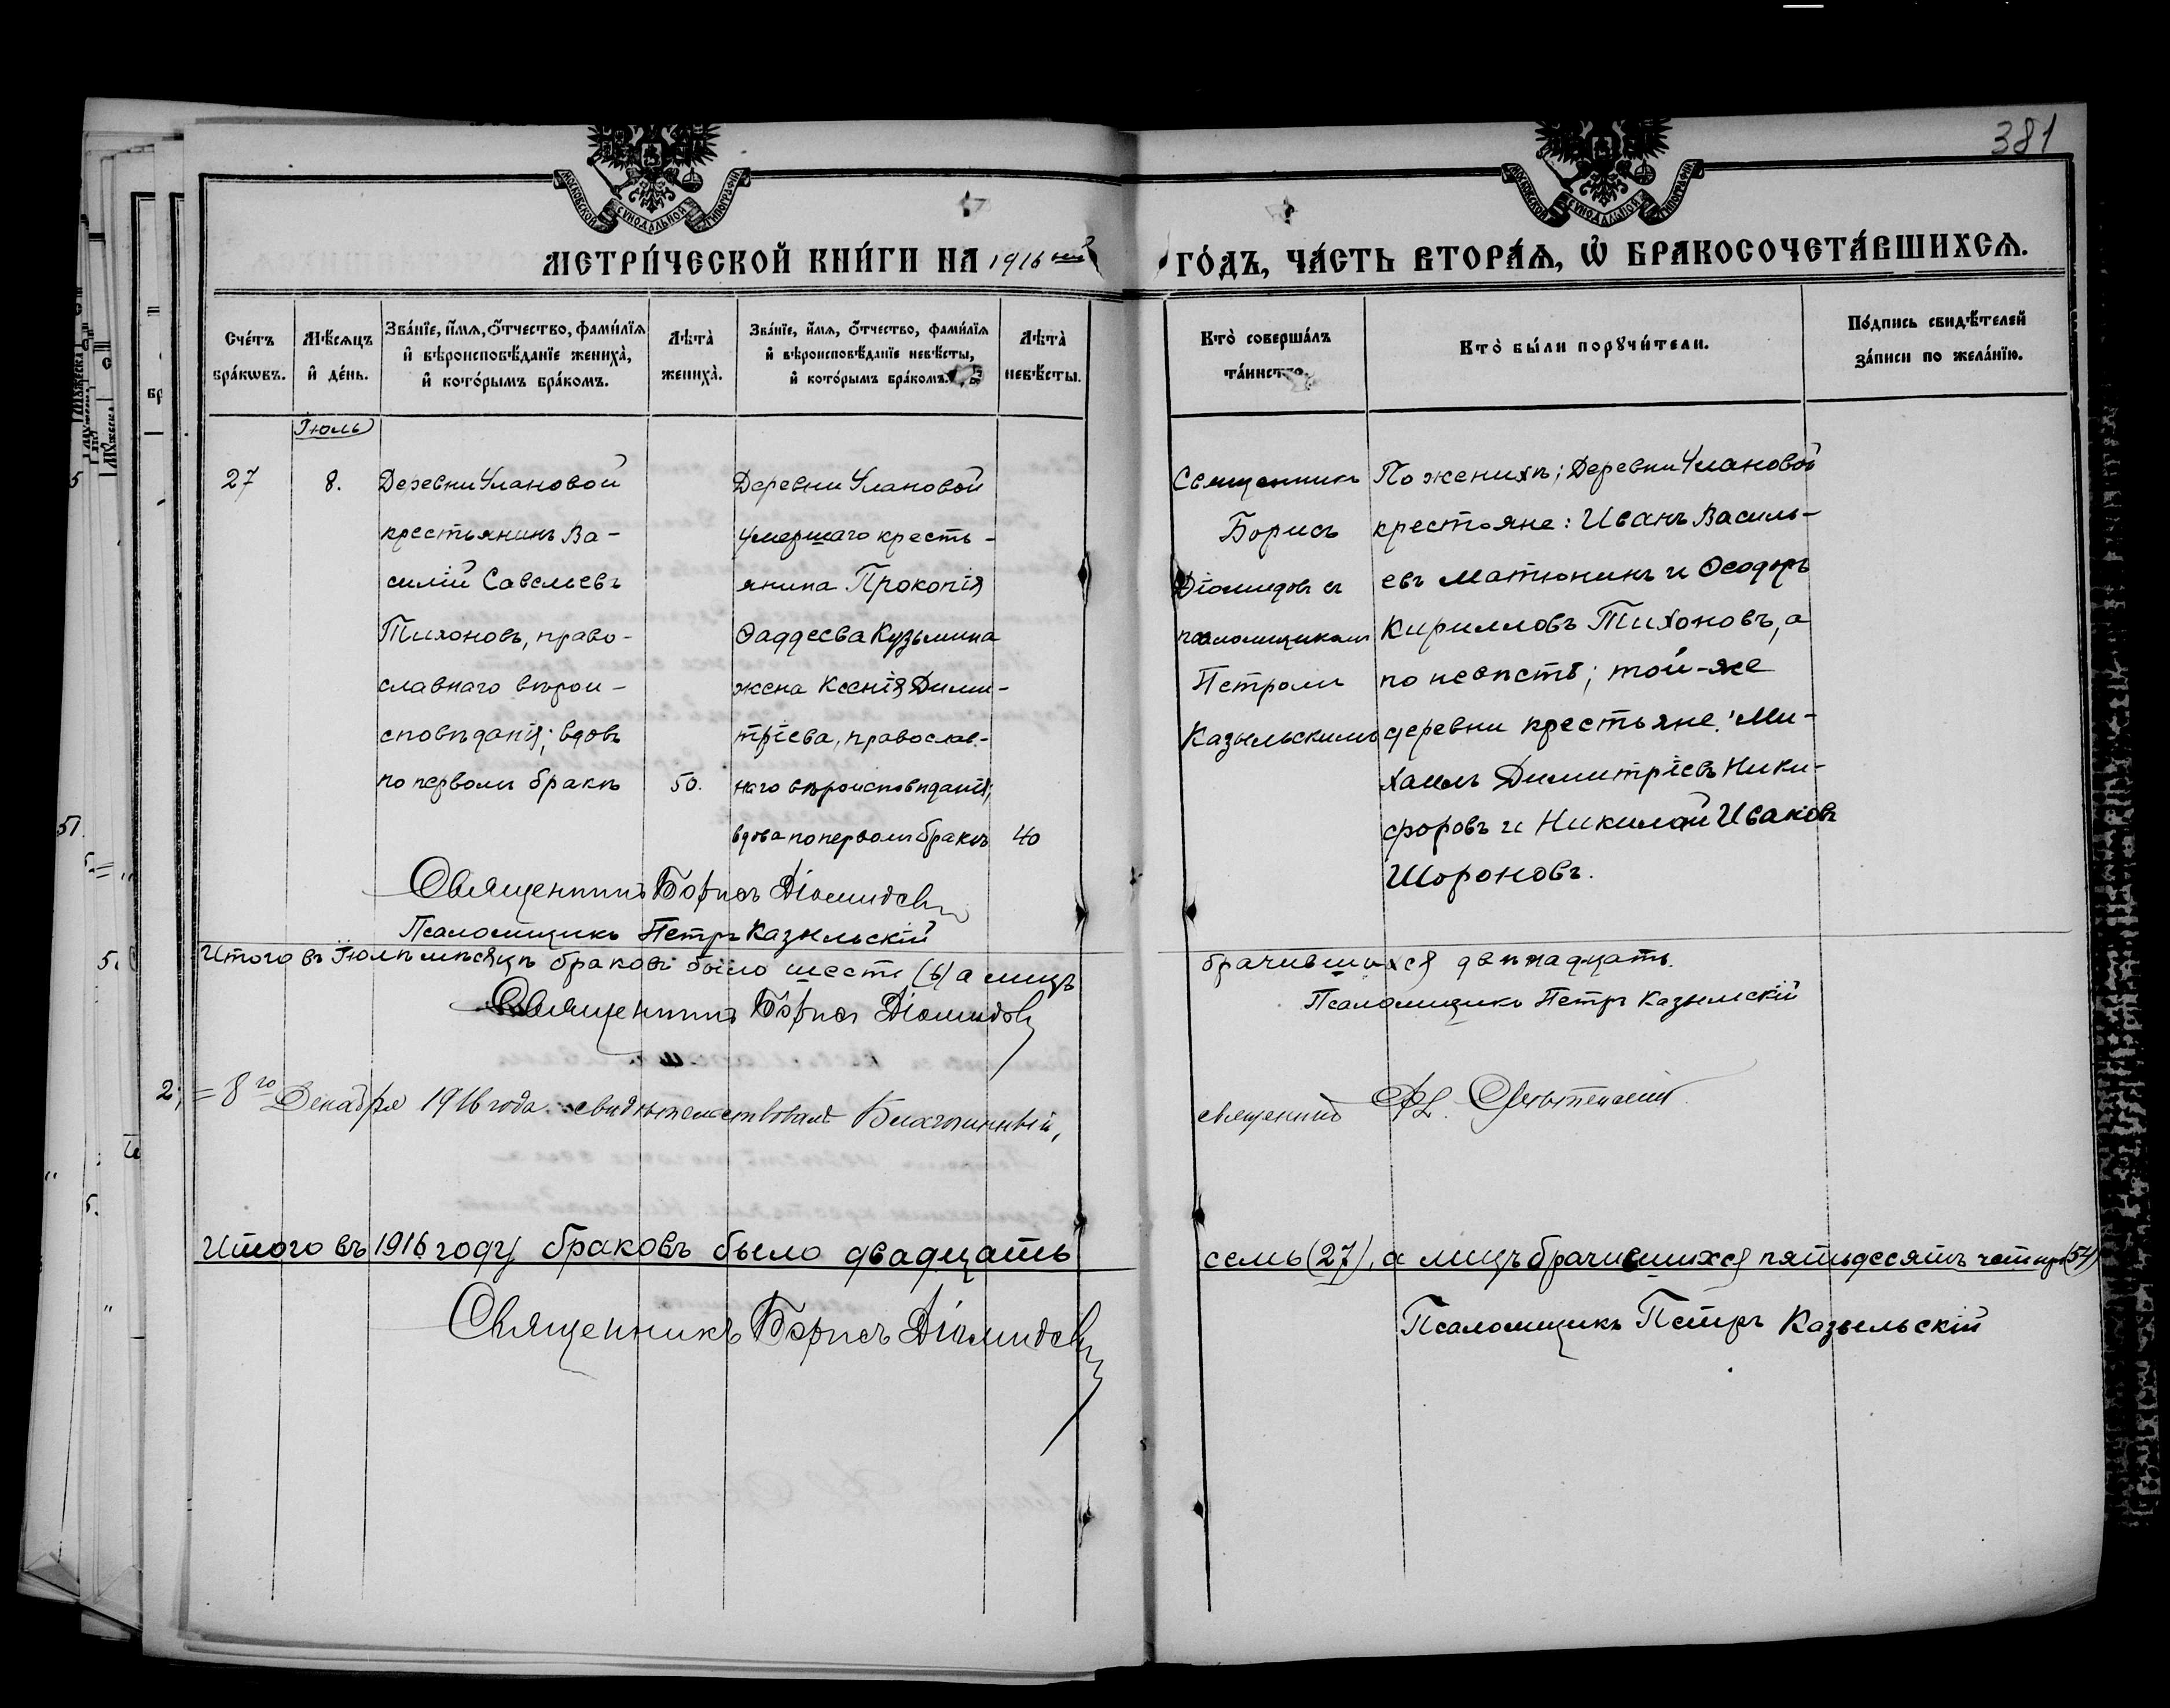 381
МОСКОВСКОЙ СУНОДАЛЬНОЙ ТИПОГРАФІИ
МОСКОВСКОЙ СУНОДАЛЬНОЙ ТИПОГРАФІИ
МЕТРИ́ЧЕСКОЙ КНИ́ГИ НА 1916 ый
ГО́ДЪ, ЧА́СТЬ ВТОРА́Ѧ, Ѡ҆ БРАКОСОЧЕТА́ВШИХСѦ.
Сче́тъ
бра́кѡвъ.
Мѣ́сяцъ
и҆ де́нь.
Зва́нїе, и҆́мѧ, ѻ҆́тчество, фами́лїѧ
и҆ вѣроисповѣ́данїе женихà,
и҆ кото́рымъ бра́комъ.
Лѣтà
женихà.
Зва́нїе, и҆́мѧ, ѻ҆́тчество, фами́лїѧ
и҆ вѣроисповѣ́данїе невѣ́сты,
и҆ кото́рымъ бра́комъ.
Лѣтà
невѣ́сты.
Ктò соверша́лъ
та́инство.
Ктò бы́ли порꙋчи́тели.
По́дпись свидѣ́телей
за́писи по жела́нїю.
Іюль
27
8.
Деревни Улановой
крестьянинъ Ва-
силій Савельевъ
Тихоновъ, право-
славнаго вѣрои-
сповѣданія; вдовъ
по первомъ бракѣ
50.
Деревни Улановой
умершаго кресть-
янина Прокопія
Ѳаддеева Кузьмина
жена Ксенія Дими-
тріева, православ-
наго вѣроисповѣданія,
вдова по первомъ бракѣ
40
Священникъ
Борисъ
Діомидовъ съ
псаломщикомъ
Петромъ
Казыльскимъ
По женихѣ; Деревни Улановой
крестьяне: Иванъ Василь-
евъ Матюнинъ и Ѳеодоръ
Кирилловъ Тихоновъ, а
по невѣстѣ; той-же
деревни крестьяне: Ми-
хаилъ Димитріевъ Ники-
форовъ и Николай Ивановъ
Шороновъ.
Священникъ Борисъ Діомидовъ
Псаломщикъ Петръ Казыльскій
Итого въ Іюлѣ мѣсяцѣ браковъ было шесть (6) а лицъ
брачившихся двѣнадцать.
Священникъ Борисъ Діомидовъ
Псаломщикъ Петръ Казыльскій
8го Декабря 1916 года свидѣтельствовалъ Благочинный,
священникъ
Итого въ 1916 году браковъ было двадцать
семь (27), а лицъ брачившихся пятьдесятъ четыре (54)
Священникъ Борисъ Діомидовъ
Псаломщикъ Петръ Казыльскій